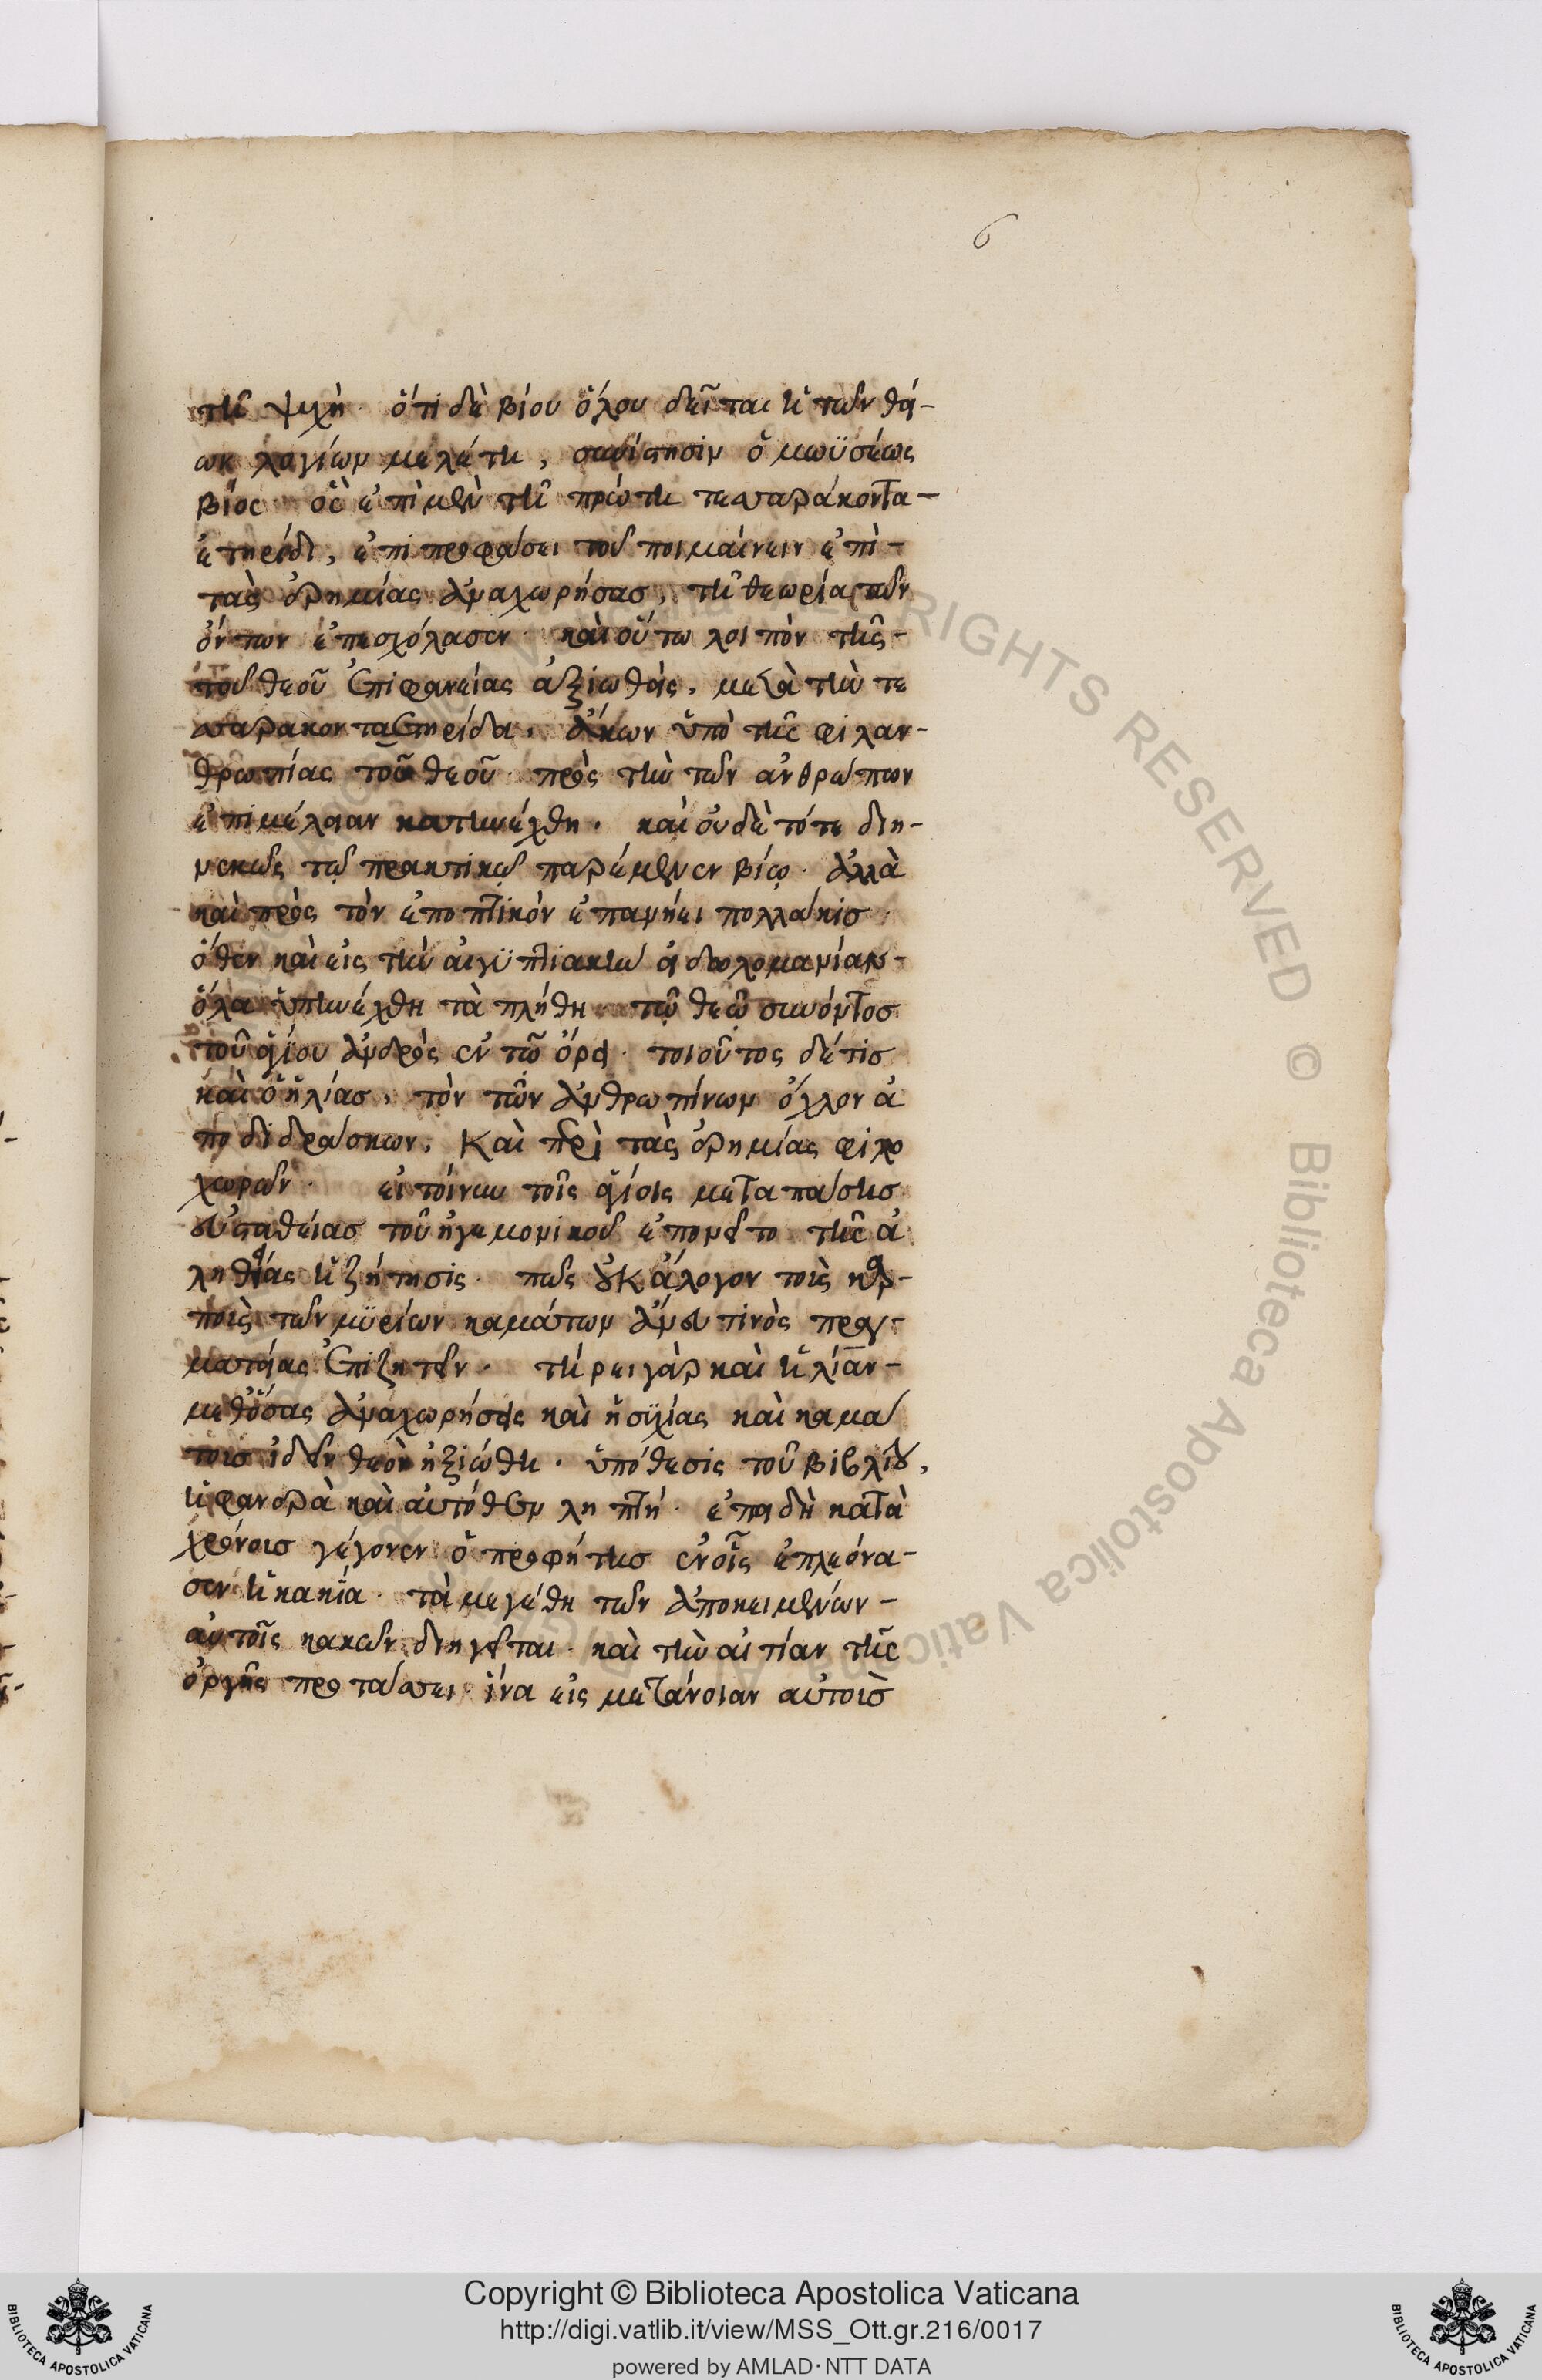 6
τῆ ψυχῆ. ὅτι δὲ βίου ὅλου δεῖται ἡ τῶν θεί-
ων λογίων μελέτη, συνίστησιν ὁ μωϋσέως
βίος· ὃς ἐπὶ μὲν τῆ πρώτη τεσσαρακοντα-
ετηρίδι, ἐπὶ προφάσει τοῦ ποιμαίνειν ἐπὶ-
τὰς ἐρημίας ἀναχωρήσας, τῆ θεωρία τῶν
ὄντων ἐπεσχόλασεν· καὶ οὕτω λοιπὸν τῆς-
τοῦ θεοῦ ἐπιφανείας ἀξιωθεὶς, μετὰ τὴν τε
σσαρακονταετηρίδα, ἄκων ὑπὸ τῆς φιλαν-
θρωπίας τοῦ θεοῦ πρὸς τὴν τῶν ἀνθρώπων
ἐπιμέλειαν κατηνέχθη. καὶ οὐδὲ τότε διη-
νεκῶς τῷ πρακτικῷ παρέμενεν βίῳ. ἀλλὰ
καὶ πρὸς τὸν ἐποπτικὸν ἐπανήει πολλάκις·
ὅθεν καὶ εἰς τὴν αἰγϋπτιακὴν εἰδωλομανίαν-
ὅλα ὑπηνέχθη τὰ πλήθη τῷ θεῷ συνόντος
τοῦ ἁγίου ἀνδρὸς ἐν τῶ ὄρει. τοιοῦτος δέ τις
καὶ ὁ ἠλίας, τὸν τῶν ἀνθρωπίνων ὄχλον ἀ
ποδιδράσκων, καὶ περὶ τὰς ἐρημίας φιλο
χωρῶν. εἰ τοίνυν τοῖς ἁγίοις μετὰ πάσης
εὐσταθείας τοῦ ἡγεμονικοῦ ἐπονεῖτο τῆς ἀ
ληθείας ἡ ζήτησις. πῶς οὐκ ἄλογον τοὺς καρ-
ποὺς τῶν μϋρίων καμάτων ἄνευ τινὸς πραγ-
ματείας ἐπιζητεῖν. τήρει γὰρ καὶ ἡλίαν-
μεθ' ὅσας ἀναχωρήσεις καὶ ἡσϋχίας καὶ καμά
τους ἰδεῖν θεὸν ἠξιώθη. ὑπόθεσις τοῦ βιβλίου,
ἡ φανερὰ καὶ αὐτόθεν ληπτή. ἐπειδὴ κατὰ
χρόνους γέγονεν ὁ προφήτης ἐν οἷς ἐπλεόνα-
σεν ἡ κακία. τὰ μεγέθη τῶν ἀποκειμένων-
αὐτοῖς κακῶν διηγεῖται. καὶ τὴν αἰτίαν τῆς
ὀργῆς προτάσσει· ἵνα εἰς μετάνοιαν αὐτοὺς
ALL RIGHTS RESERVED © Biblioteca Apostolica Vaticana
BIBLIOTECA APOSTOLICA VATICANA
Copyright © Biblioteca Apostolica Vaticana
http://digi.vatlib.it/view/MSS_Ott.gr.216/0017
powered by AMLAD·NTT DATA
BIBLIOTECA APOSTOLICA VATICANA